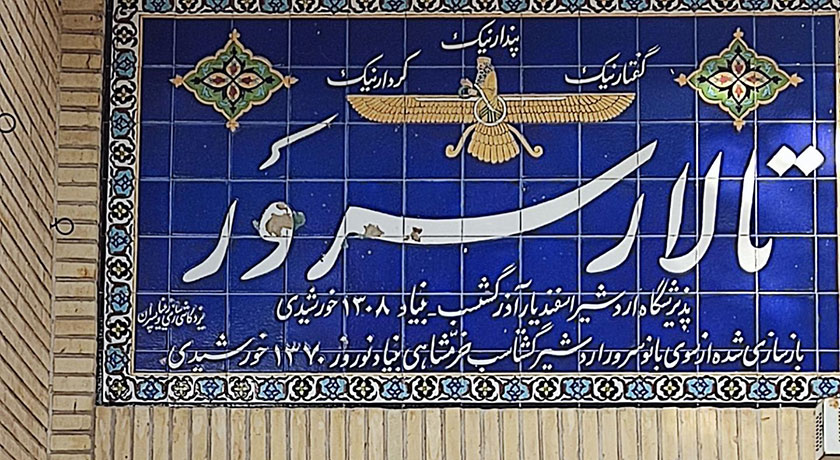 پندار نیک
گفتار نیک
کردار نیک
تالار سروَر
پذیرشگاه اردشیر اسفندیار آذرگشسب - بنیاد ۱۳۰۸ خورشیدی
بازسازی شده از سوی بانو سرور اردشیر گشتاسب خرّمشاهی بنیاد نوروز ۱۳۷۰ خورشیدی
یزد کاشی سازی